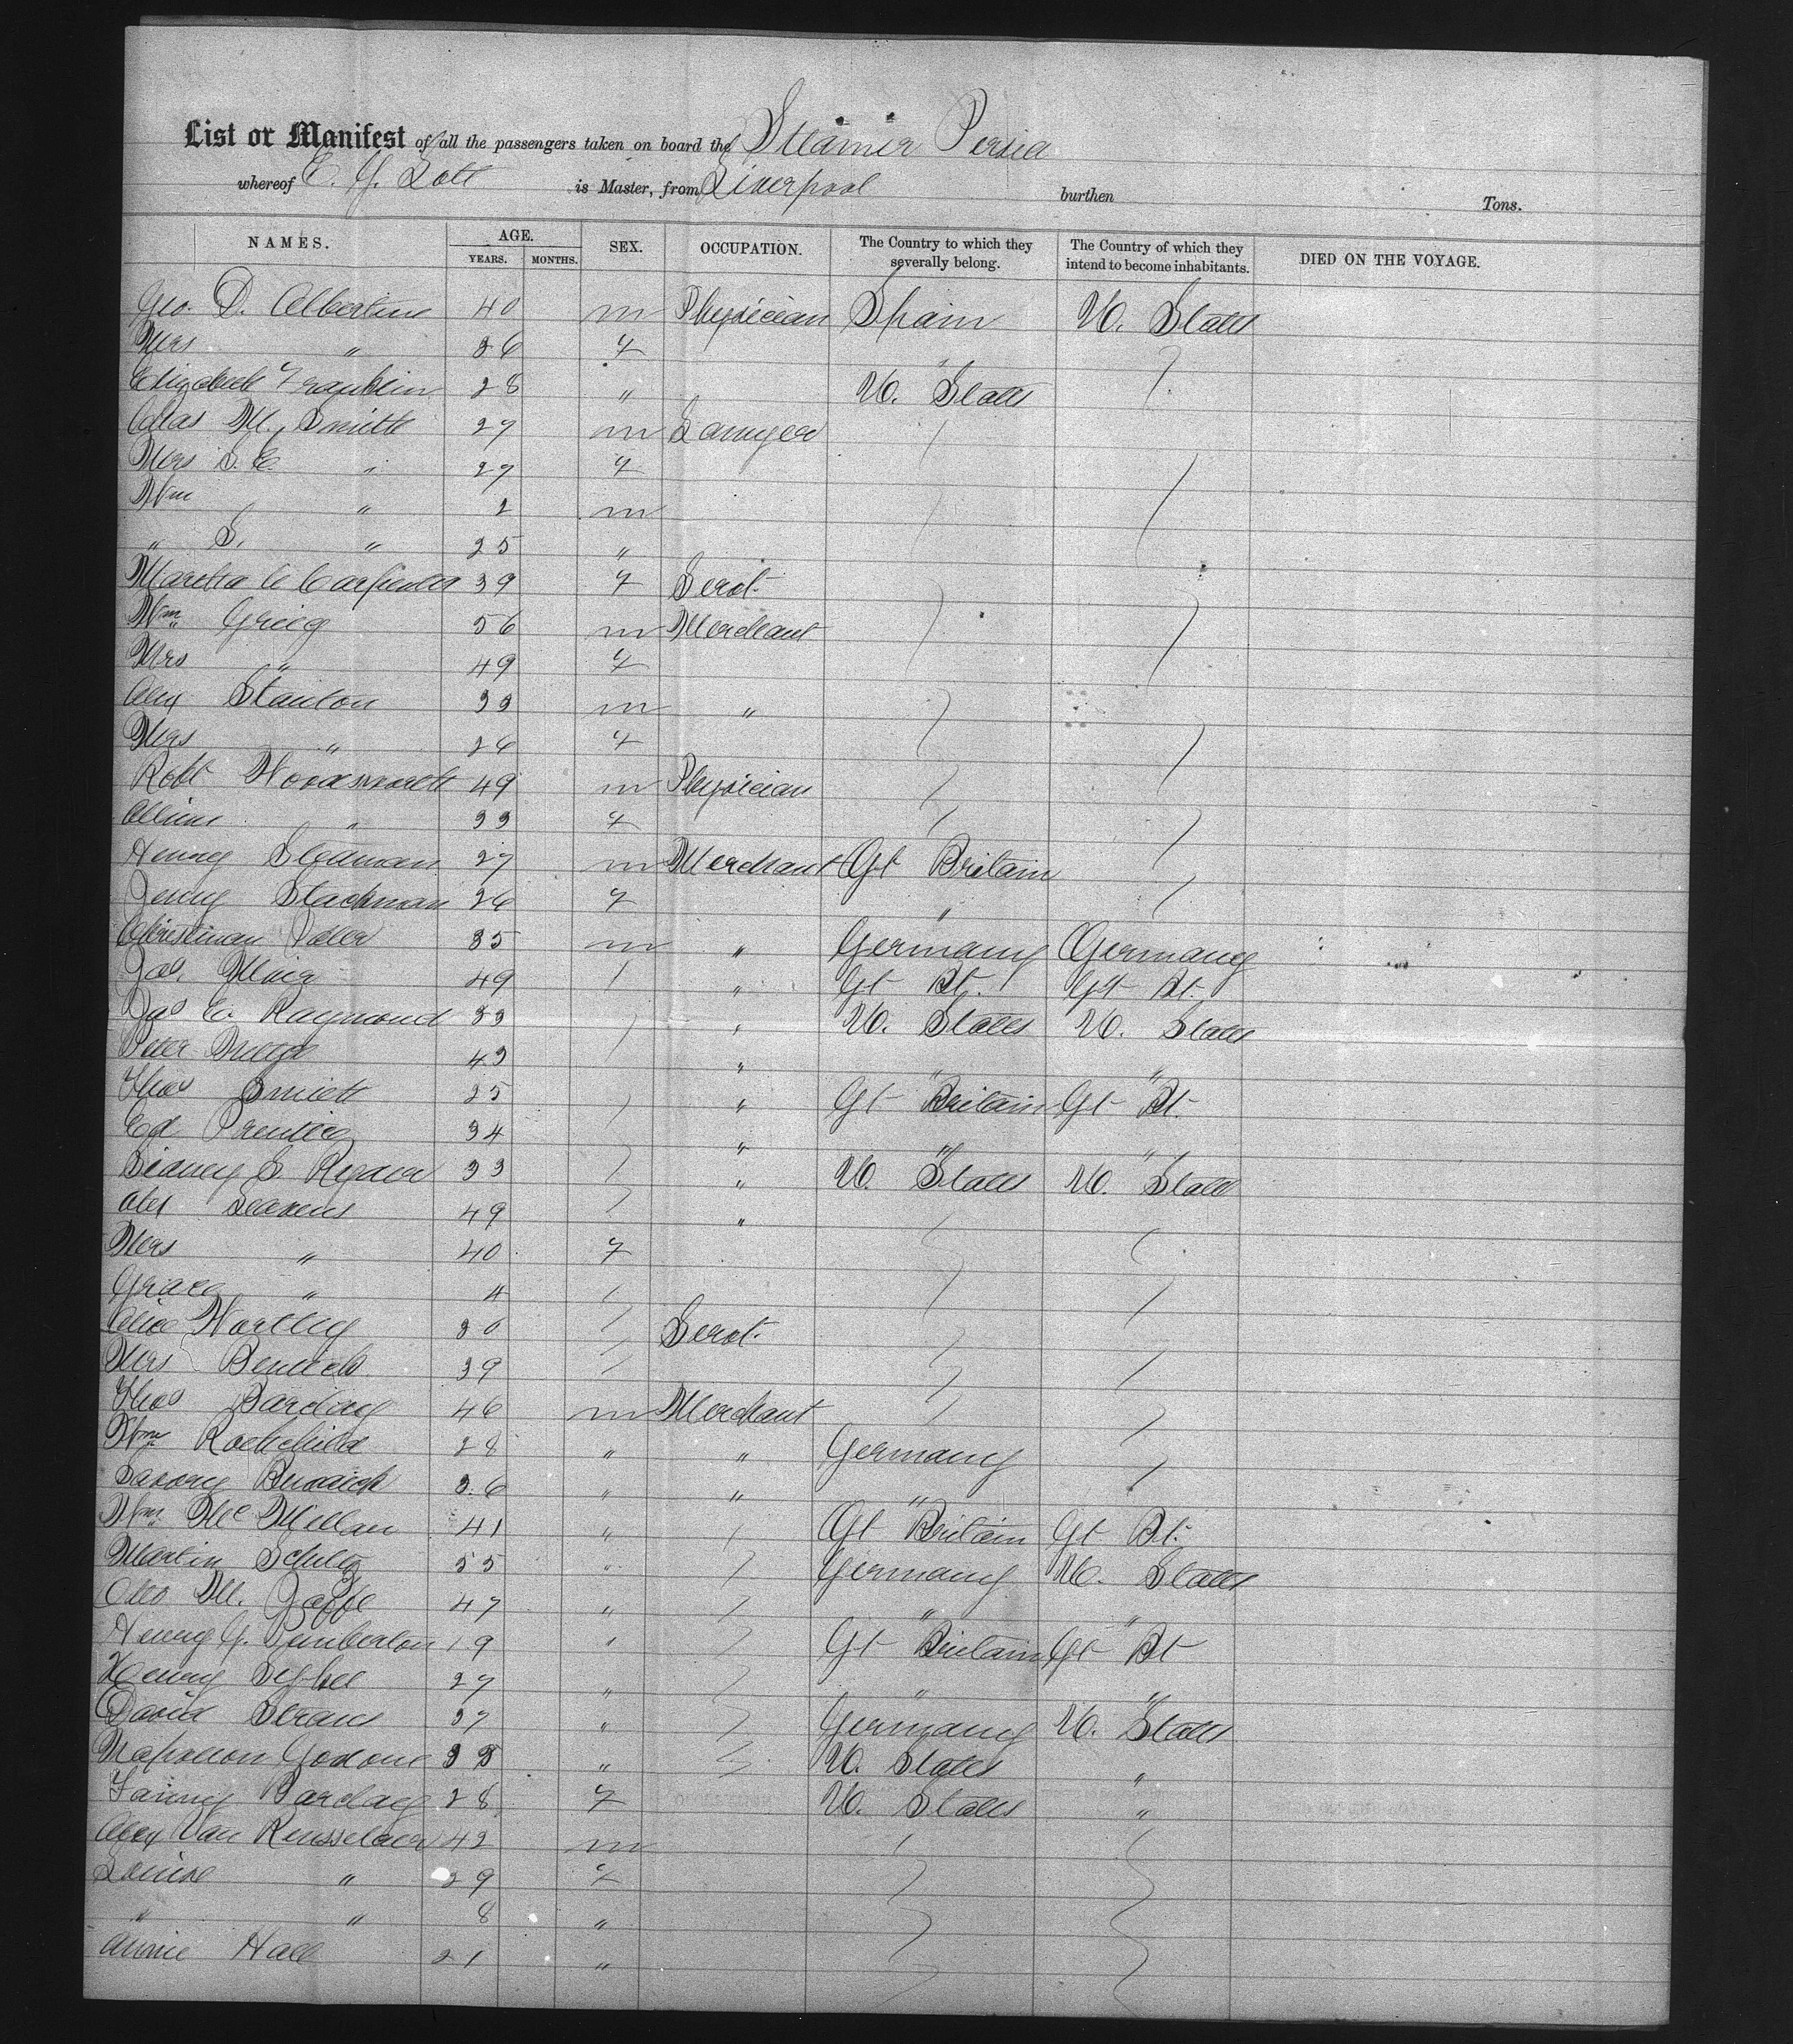 List or Manifest of all the passengers taken on board the Steamer Persia
whereof E. G. Lott is Master, from Liverpool burthen Tons.
NAMES. AGE. YEARS. MONTHS. SEX. OCCUPATION. The Country to which they severally belong. The Country of which they intend to become inhabitants. DIED ON THE VOYAGE.
Geo. D. Albertine 40 m Physician Spain U. States
Mrs " 36 f "
Elizabeth Franklin 28 " U. States
Chas M. Smith 27 m Lawyer
Mrs S. E. " 27 f
Wm " 2 m
" S. " 25 "
Martha C Carpenter 39 f Servt.
Wm Grieg 56 m Merchant
Mrs " 49 f
Alex Stanton 33 m "
Mrs " 26 f
Robt Woodsworth 49 m Physician
" 33 f
Henry 27 m Merchant Gt Britain
Jenny Slachman 26 f "
Christinan Adler 35 m " Germany Germany
Jas. Muir 49 " Gt Bt. Gt Bt.
Jas E. Raymond 33 " U. States U. States
Peter 43 " " "
Thos Smith 25 " Gt Britain Gt Bt.
Ed 34 " " "
Sidney S. Ryder 33 " U. States U. States
49 "
Mrs " 40 f
Grace " 4
Alice Wortley 30 Servt.
Mrs 39
Thos Barclay 46 m Merchant
Wm Rothchild 28 " " Germany
36 " " "
Wm McMillan 41 " Gt Britain Gt Bt.
Martin Schultz 55 " Germany U. States
M. Jaffe 47 " " "
Henry G. Pemberton 19 " Gt Britain Gt Bt
Henry 27 " " "
David Straus 37 " Germany U. States
Napoleon 35 " U. States "
Fanny Barclay 28 f U. States "
Alex Van Rensselaer 42 m
Louise " 29 f
" " 8 "
Annie Hall 21 "